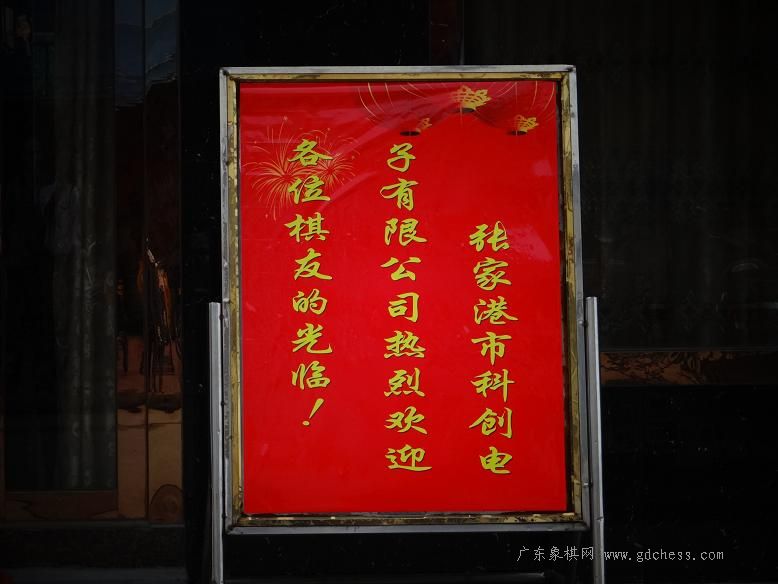 张家港市科创电
子有限公司热烈欢迎
各位棋友的光临！
广东象棋网 www.gdchess.com